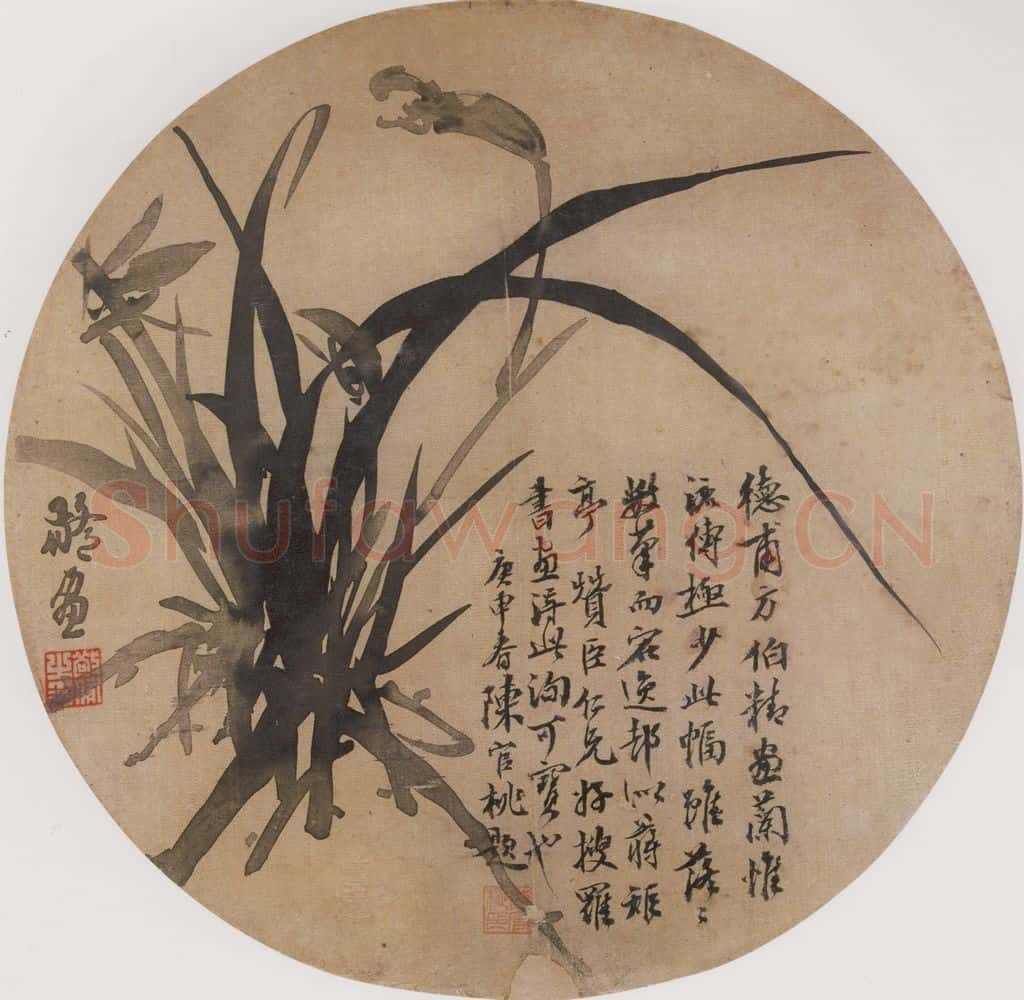 德甫方伯精畫蘭惟
流傳極少此幅雖落〻
數筆而宕逸却似蔣矩
亭 臣仁兄好搜羅
書畫得此洵可寶也
庚申春陳官桃題
畫
Shufawang.CN